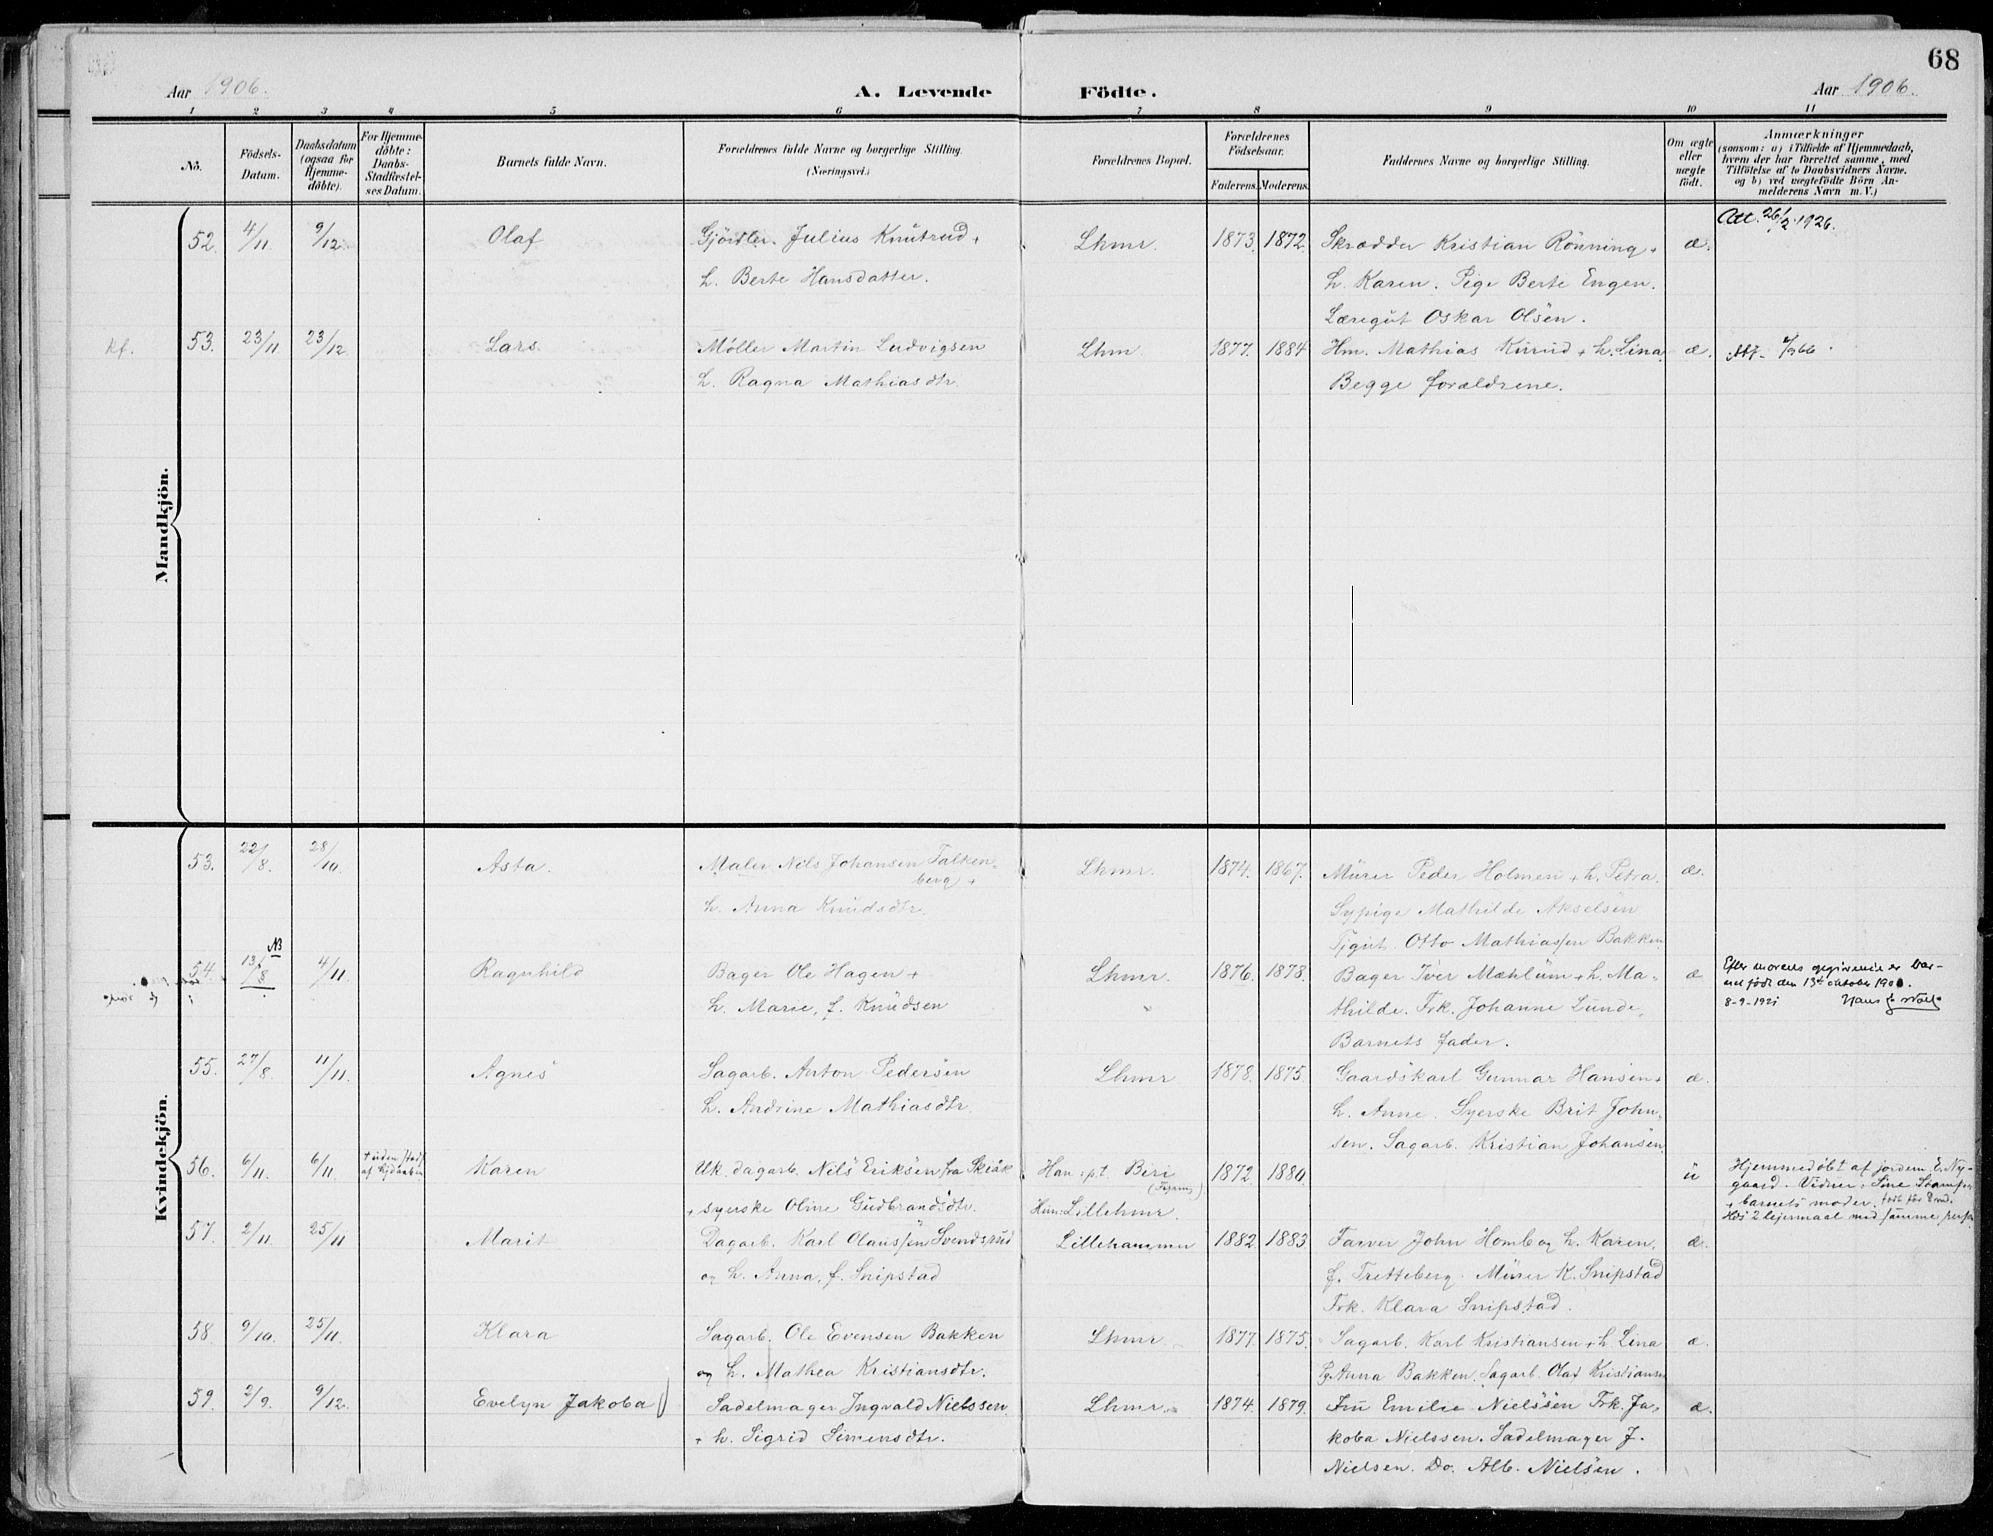 68
Aar 1906.
A. Levende Födte.
Aar 1906.
1 2 3 4 5 6 7 8 9 10 11
No.
Födsels-Datum.
Daabsdatum (ogsaa for Hjemme-döbte).
For Hjemme-döbte: Daabs-Stadfæstel-ses Datum.
Barnets fulde Navn.
Forældrenes fulde Navne og borgerlige Stilling.
(Næringsvei.)
Forældrenes Bopæl.
Forældrenes Födselsaar.
Faderens. Moderens.
Faddernes Navne og borgerlige Stilling.
Om ægte eller uægte født.
Anmærkninger
(saasom: a) i Tilfælde af Hjemmedaab,
hvem der har forrettet samme, med
Tilföielse af to Daabsvidners Navne,
og b) ved uægtefödte Börn An-
melderens Navn m. V.)
Mandkjön.
Att. 26/2 1926.
52. 4/11 9/12. Olaf Gjörtler. Julius Knutrud + Lhmr. 1873. 1872. Skrædder Kristian Rönning + æ.
h. Berte Hansdatter. h. Karen. Pige Berte Engen.
Læregut Oskar Olsen.
kf. 53. 23/11 23/12. Lars. Møller Martin Ludvigsen Lhm. 1877. 1884 Hm. Mathias Kurud + h. Lina æ.
h. Ragna Mathiasdtr. Begge forældrene.
Kvindekjön.
53. 22/8. 28/10. Asta. Maler Nils Johansen Falken- Lhmr. 1874. 1867. Murer Peder Holmen + h. Petra. æ.
berg +
h. Anna Knudsdtr. Sypige Mathilde Akselsen
Tjgut. Otto Mathiassen Bakken
54. 13/8 NB 4/11. Ragnhild Bager Ole Hagen + Lhmr. 1876. 1878. Bager Iver Mæhlum + h. Ma- æ Efter morens opgivende er bar-
net født den 13de oktober 1906.
h. Marie, f. Knudsen " thilde. Frk. Johanne Lunde, 8-9-1921 Hans
Barnets fader.
55. 27/8. 11/11. Agnes Sagarb. Anton Pedersen Lhmr 1878. 1875. Gaardskarl Gunnar Hansen + æ.
h. Andrine Mathiasdtr. h. Anne. Syerske Brit John-
sen. Sagarb. Kristian Johansen.
56. 6/11. 6/11. + uden stadf. Karen Uk. dagarb. Nils Eriksen fra Skiåk Han: p.t. Biri 1872. 1880. u Hjemmedøbt af jordem. E. Ny-
gaard. Vidner:
+ syerske Oline Gudbrandsdtr. Hun: Lillehmr. + barnets moder.
Hds 2 lejermaal med samme pers.
57. 2/11. 25/11 Marit Dagarb. Karl Olaussen Svendsrud Lillehammer 1882. 1883 Farver John Homb og h. Karen, æ.
og h. Anna, f. Snipstad f. Tretteberg. Murer K. Snipstad
Frk. Klara Snipstad.
58. 9/10. 25/11. Klara Sagarb. Ole Evensen Bakken Lhmr. 1877. 1875. Sagarb. Karl Kristiansen + h. Lina æ.
og h. Mathea Kristiansdtr. Pg. Anna Bakken. Sagarb. Olaf Kristiansn
59. 2/9. 9/12. Evelyn Jakoba Sadelmager Ingvald Nielssen Lhmr. 1874. 1879. Fru Emilie Nielssen Frk. Ja- æ.
+ h. Sigrid Simensdtr. koba Nielssen. Sadelmager J.
Nielsen. Do. Alb. Nielsen.